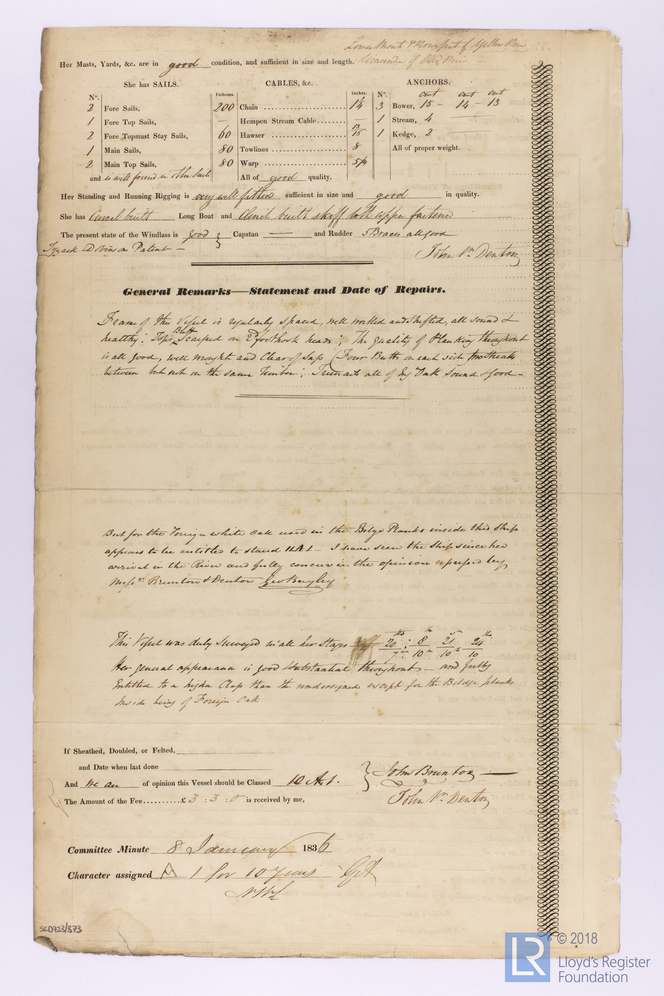 Lower Masts & Bowsprit of Yellow Pine
Her Masts, Yards, &c. are in good condition, and sufficient in size and length. Remainder of Red Pine
She has SAILS.
CABLES, &c.
ANCHORS.
N°.
Fathoms.
Inches.
N°.
cwt cwt cwt
2 Fore Sails, 200 Chain 3 Bower, 15 - 14 - 13
1 Fore Top Sails, — Hempen Stream Cable 1 Stream, 4
2 Fore Topmast Stay Sails, 60 Hawser 1 Kedge, 2
1 Main Sails, 80 Towlines 8 All of proper weight.
2 Main Top Sails, 80 Warp
and is well found in other sails All of good quality,
Her Standing and Running Rigging is very well fitted sufficient in size and good in quality.
She has Carvel built Long Boat and Clinch built skiff both copper fastened
The present state of the Windlass is good Capstan — and Rudder 5 Braces all good
Tyzack & Dobinson Patent —
John Wm Denton
General Remarks—Statement and Date of Repairs.
Frame of this Vessel is regularly spaced, well molded and shifted, all sound &
healthy; Tops Butt Scarped on 2 foothook heads; The quality of Planking throughout
is all good, well wrought and Clear of Sap (Four Butts on each side two streaks
between but not on the same timber; Treenails all of Dry Oak Sound & Good —
But for the Foreign white Oak used in the Bilge Planks inside this Ship
appears to be entitled to stand 12 A 1 — I have seen the Ship since her
arrival in the River and fully concur in the opinion expressed by
Messrs Brunton & Denton Geo Bayley
This Vessel was duly Surveyed in all her Stages
Her general appearance is good & substantial throughout — and fully
Entitled to a higher Class than the undersigned except for the Bildge planks
inside being of Foreign Oak
If Sheathed, Doubled, or Felted,
and Date when last done
And we are of opinion this Vessel should be Classed 10 A 1. John Brunton
The Amount of the Fee..........£ 3 : 3 : 0 is received by me, John Wm Denton
Committee Minute 8 January 1836
Character assigned A 1 for 10 years
SLD923/373
LR
© 2018
Lloyd's Register
Foundation